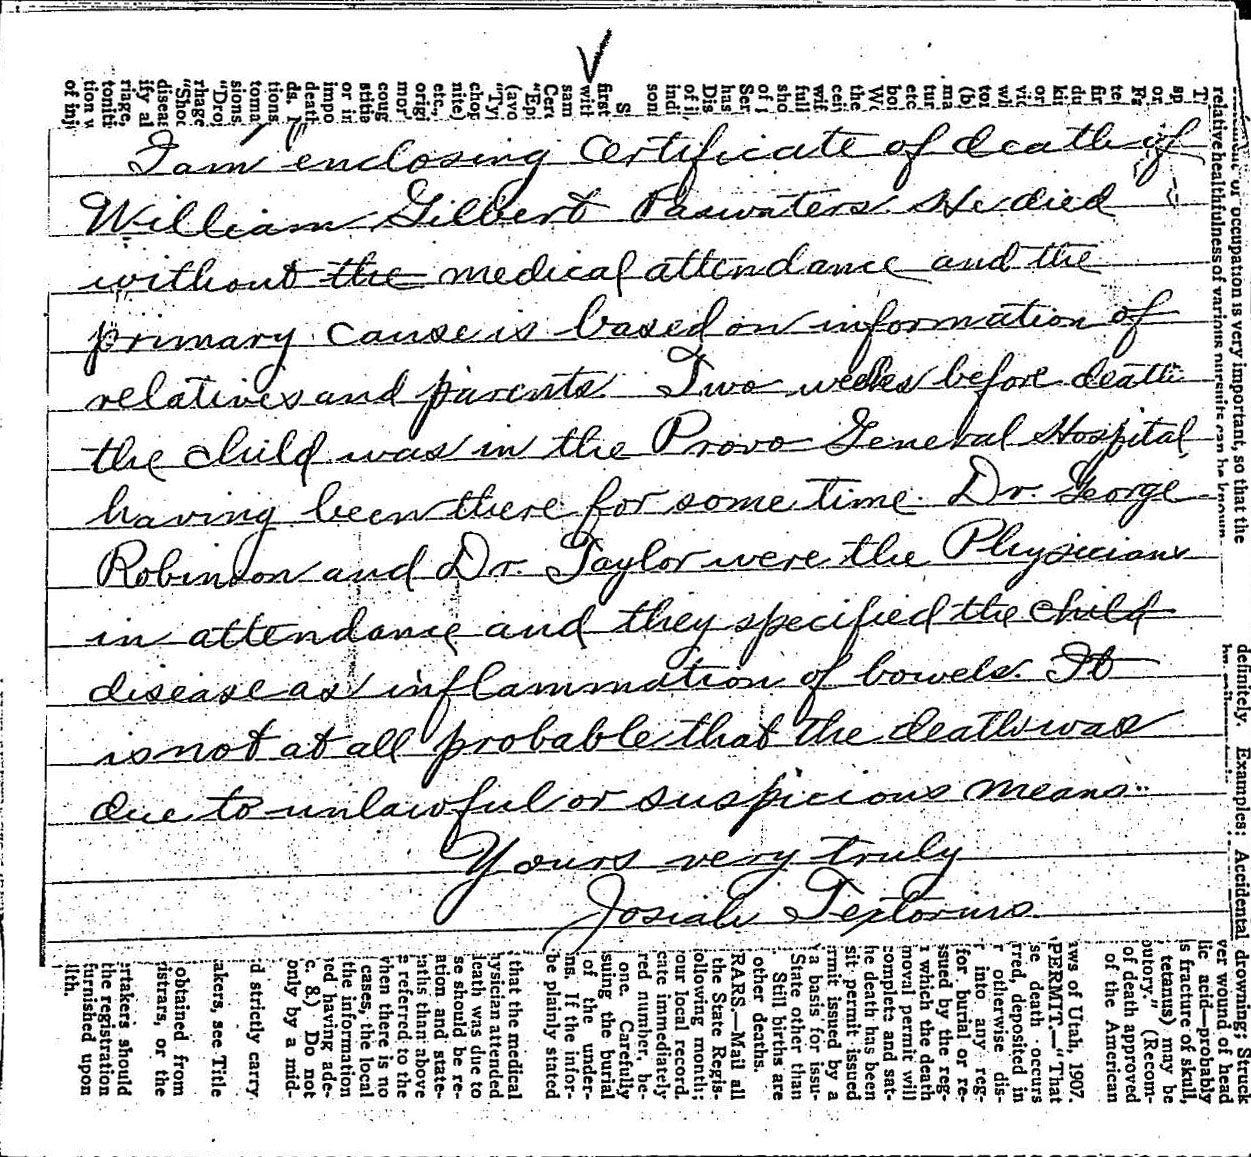 I am enclosing Certificate of death of
William Gilbert Paswaters. He died
without the medical attendance and the
primary cause is based on information of
relatives and parents. Two weeks before death
the child was in the Provo General Hospital,
having been there for some time. Dr. George
Robinson and Dr. Taylor were the Physicians
in attendance and they specified the child
disease as inflammation of bowels. It
is not at all probable that the death was
due to unlawful or suspicious means.
Yours very truly
Josiah Textorius
occupation is very important, so that the
relative healthfulness of various pursuits can be known
definitely. Examples: Accidental drowning; Struck
wound of head
acid—probably
fracture of skull,
tetanus) may be
(Recom-
of death approved
of the American
of Utah, 1907.
PERMIT.—"That
death occurs
deposited in
otherwise dis-
into any reg-
for burial or re-
by the reg-
which the death
permit will
complete and sat-
death has been
permit issued
issued by a
a basis for issu-
State other than
Still births are
other deaths.
Mail all
the State Regis-
month;
local record.
immediately
number, be-
one. Carefully
the burial
of the under-
If the infor-
be plainly stated
that the medical
attended
was due to
should be re-
and state-
than above
referred to the
when there is no
cases, the local
the information
having ade-
8.) Do not
only by a mid-
strictly carry
see Title
obtained from
or the
should
the registration
furnished upon